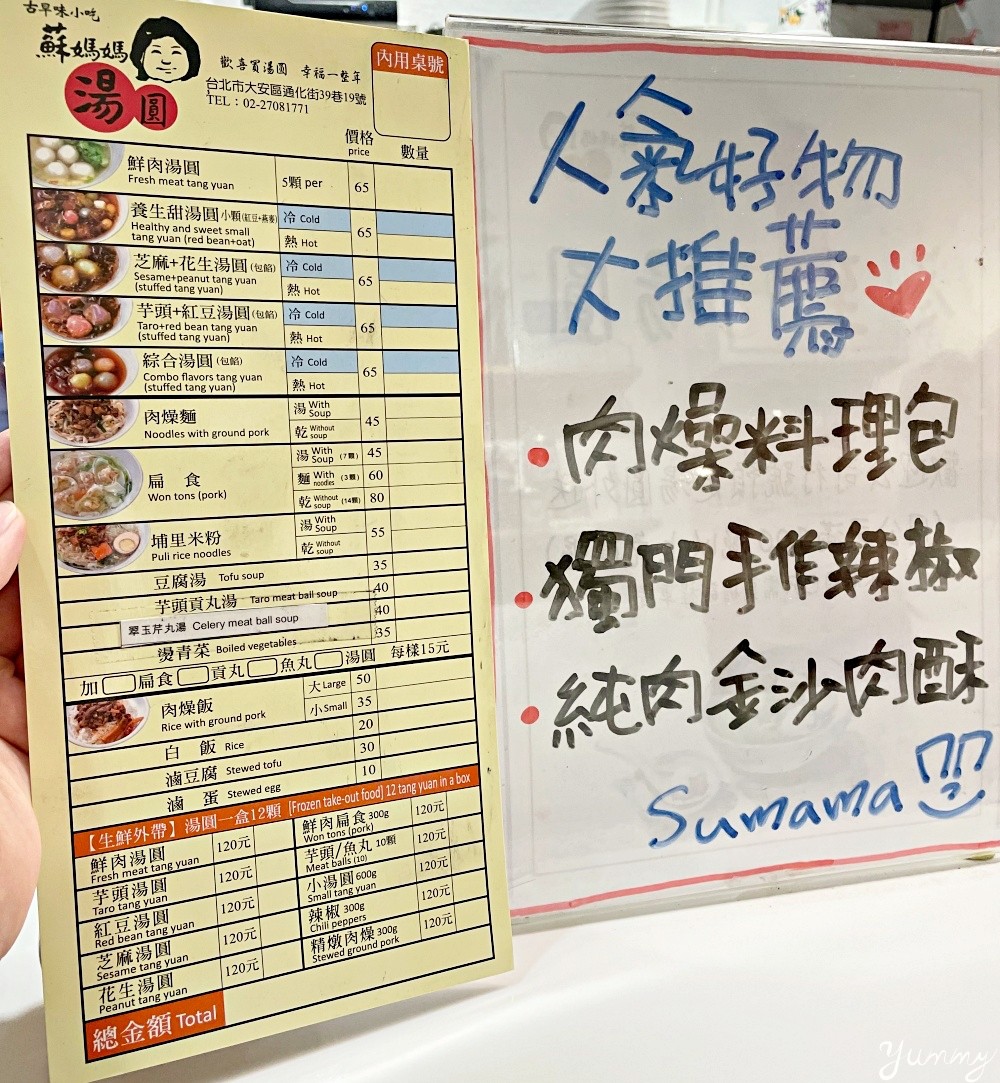 古早味小吃
蘇媽媽
湯圓
歡喜賣湯圓 幸福一整年
台北市大安區通化街39巷19號
TEL：02-27081771
內用桌號
價格 price 數量
鮮肉湯圓 5顆 per 65
Fresh meat tang yuan
養生甜湯圓 小顆(紅豆+燕麥) 冷 Cold 65
Healthy and sweet small
tang yuan (red bean+oat) 熱 Hot
芝麻+花生湯圓 (包餡) 冷 Cold 65
Sesame+peanut tang yuan
(stuffed tang yuan) 熱 Hot
芋頭+紅豆湯圓 (包餡) 冷 Cold 65
Taro+red bean tang yuan
(stuffed tang yuan) 熱 Hot
綜合湯圓 (包餡) 冷 Cold 65
Combo flavors tang yuan
(stuffed tang yuan) 熱 Hot
肉燥麵 湯 With Soup 45
Noodles with ground pork 乾 Without soup
扁食 湯 With Soup (7顆) 45
Won tons (pork) 麵 With noodles (3顆) 60
乾 Without soup (14顆) 80
埔里米粉 湯 With Soup 55
Puli rice noodles 乾 Without soup
豆腐湯 Tofu soup 35
芋頭貢丸湯 Taro meat ball soup 40
翠玉芹丸湯 Celery meat ball soup 40
燙青菜 Boiled vegetables 35
加 扁食 貢丸 魚丸 湯圓 每樣15元
肉燥飯 大 Large 50
Rice with ground pork 小 Small 35
白飯 Rice 20
滷豆腐 Stewed tofu 30
滷蛋 Stewed egg 10
【生鮮外帶】湯圓一盒12顆 [Frozen take-out food] 12 tang yuan in a box
鮮肉湯圓 120元
Fresh meat tang yuan
芋頭湯圓 120元
Taro tang yuan
紅豆湯圓 120元
Red bean tang yuan
芝麻湯圓 120元
Sesame tang yuan
花生湯圓 120元
Peanut tang yuan
鮮肉扁食 300g 120元
Won tons (pork)
芋頭/魚丸 10顆 120元
Meat balls (10)
小湯圓 600g 120元
Small tang yuan
辣椒 300g 120元
Chili peppers
精燉肉燥 300g 120元
Stewed ground pork
總金額 Total
人氣好物
大推薦
肉燥料理包
獨門手作辣椒
純肉金沙肉酥
Sumama
Yummy